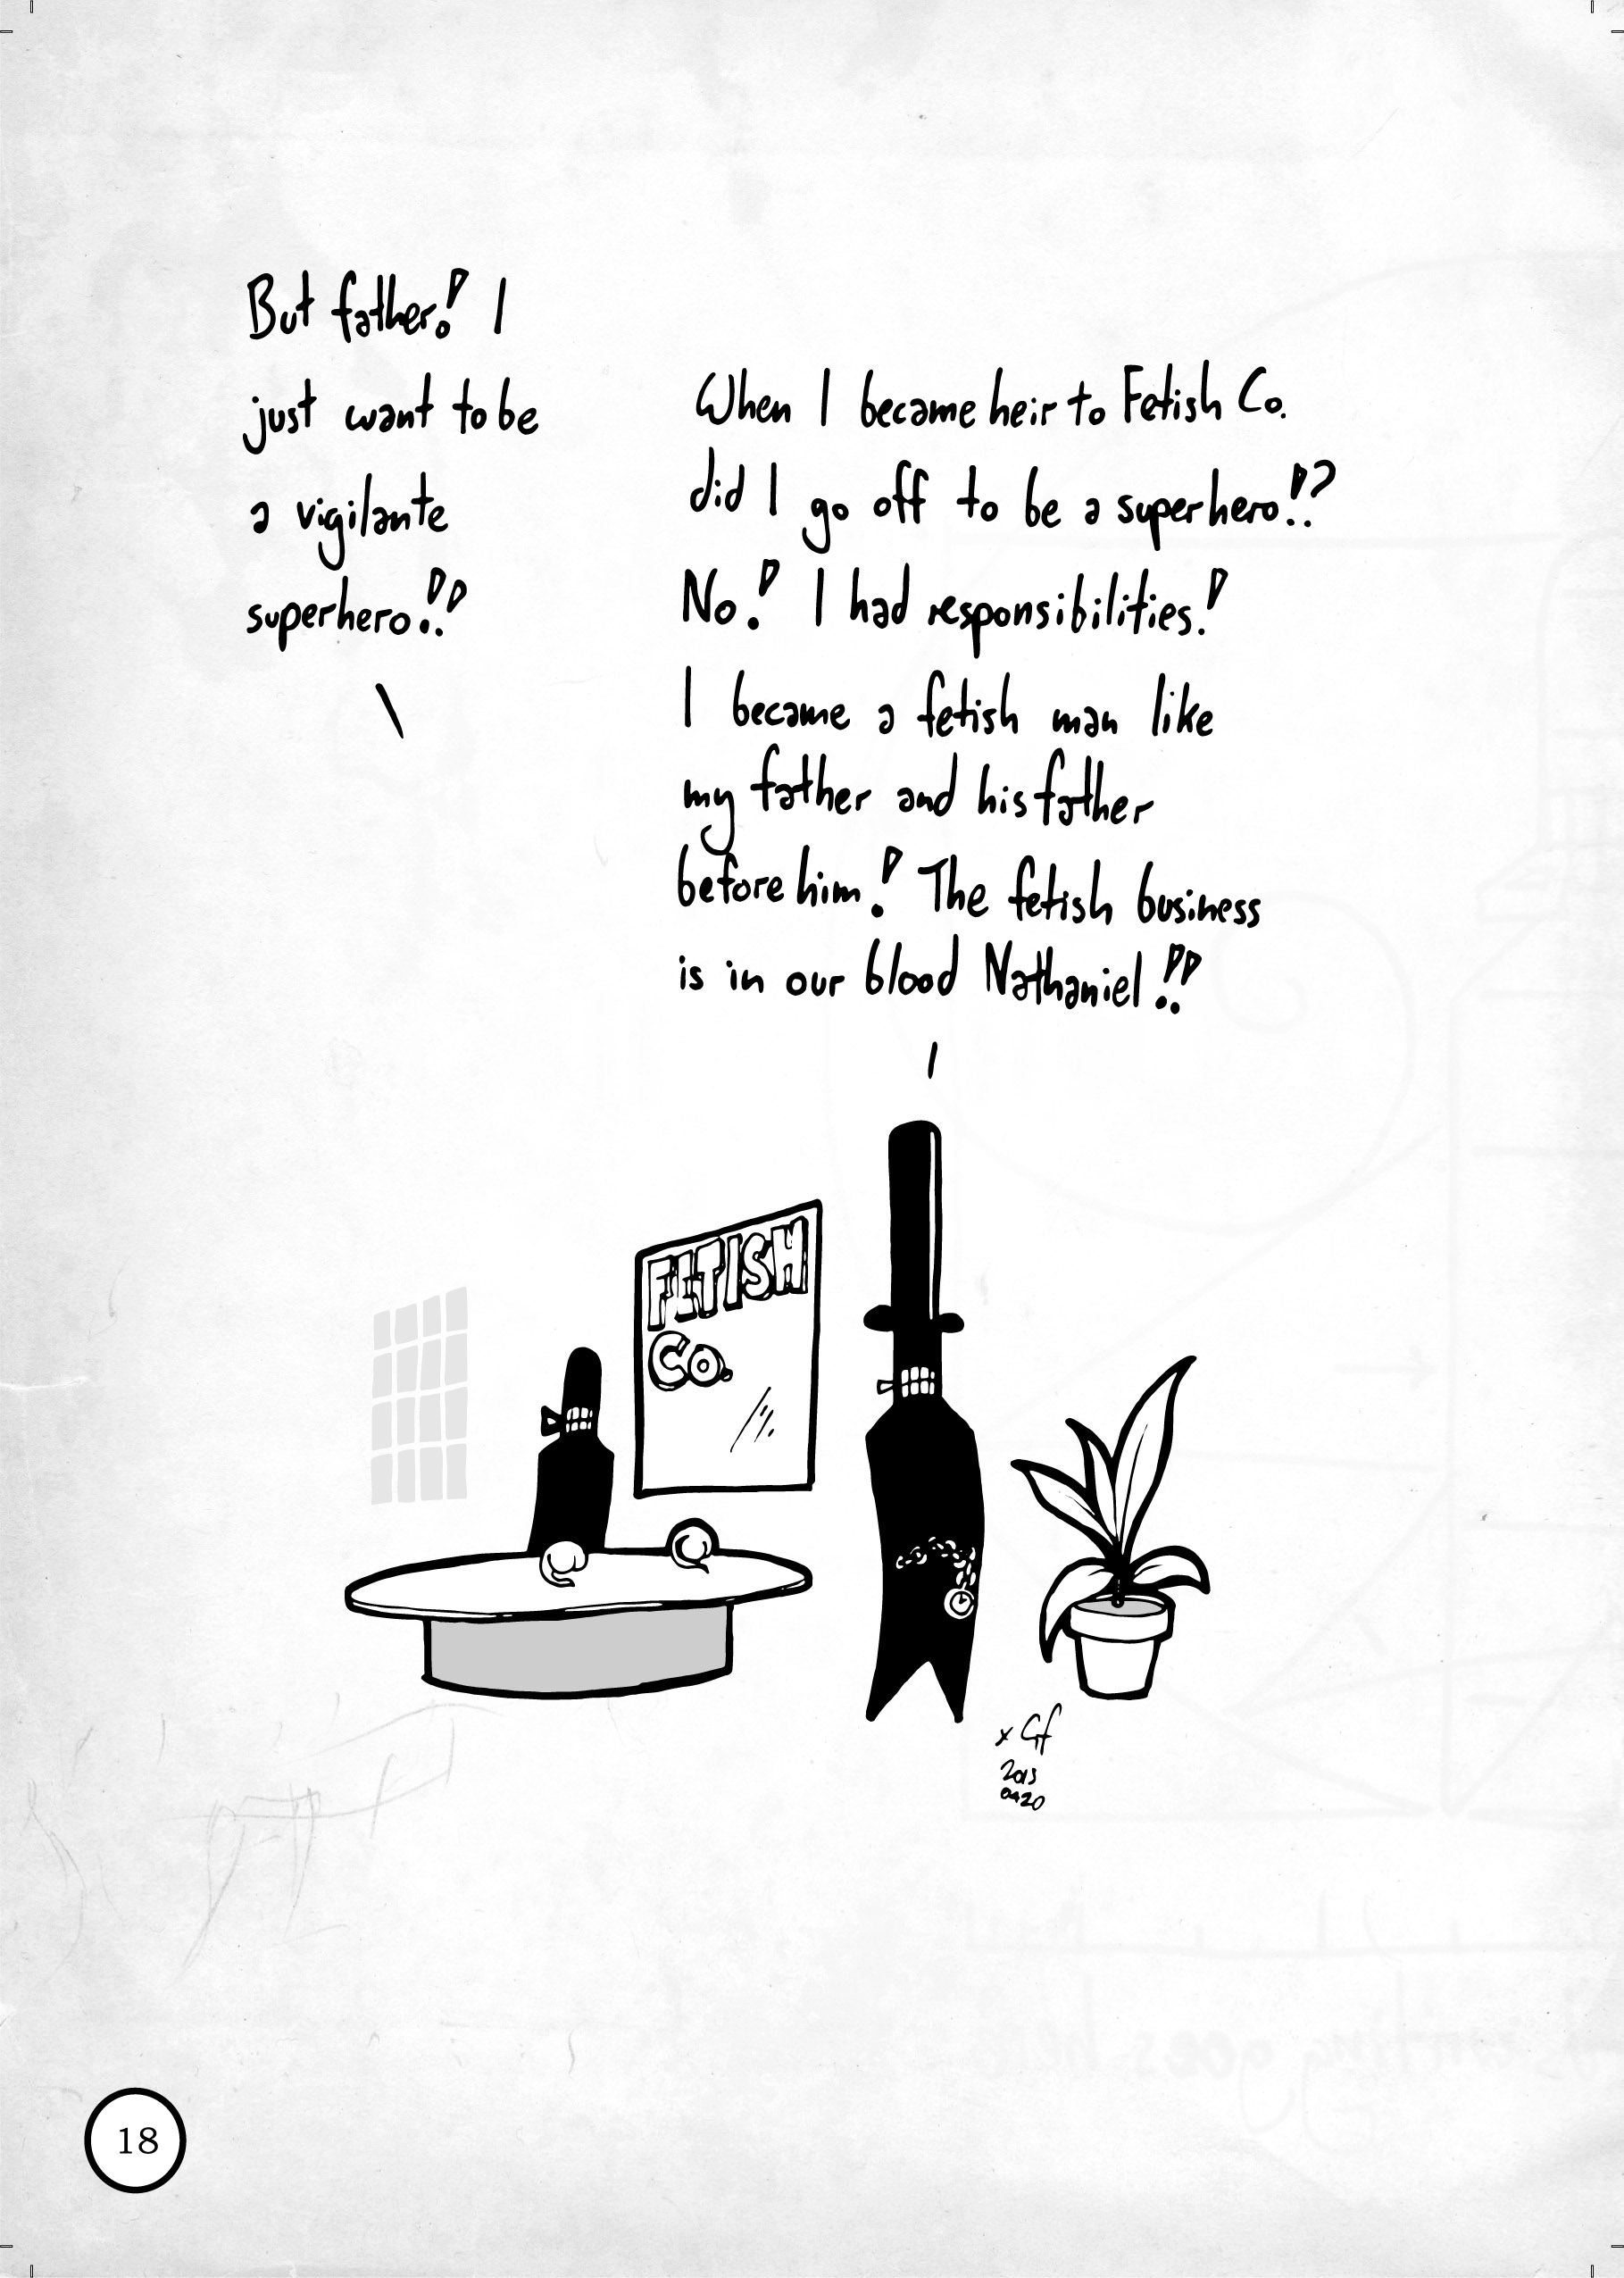 But father! I
just want to be
a vigilante
superhero!!
When I became heir to Fetish Co.
did I go off to be a superhero!?
No! I had responsibilities!
I became a fetish man like
my father and his father
before him! The fetish business
is in our blood Nathaniel!!
FETISH
Co.
x Gf
2013
0420
18